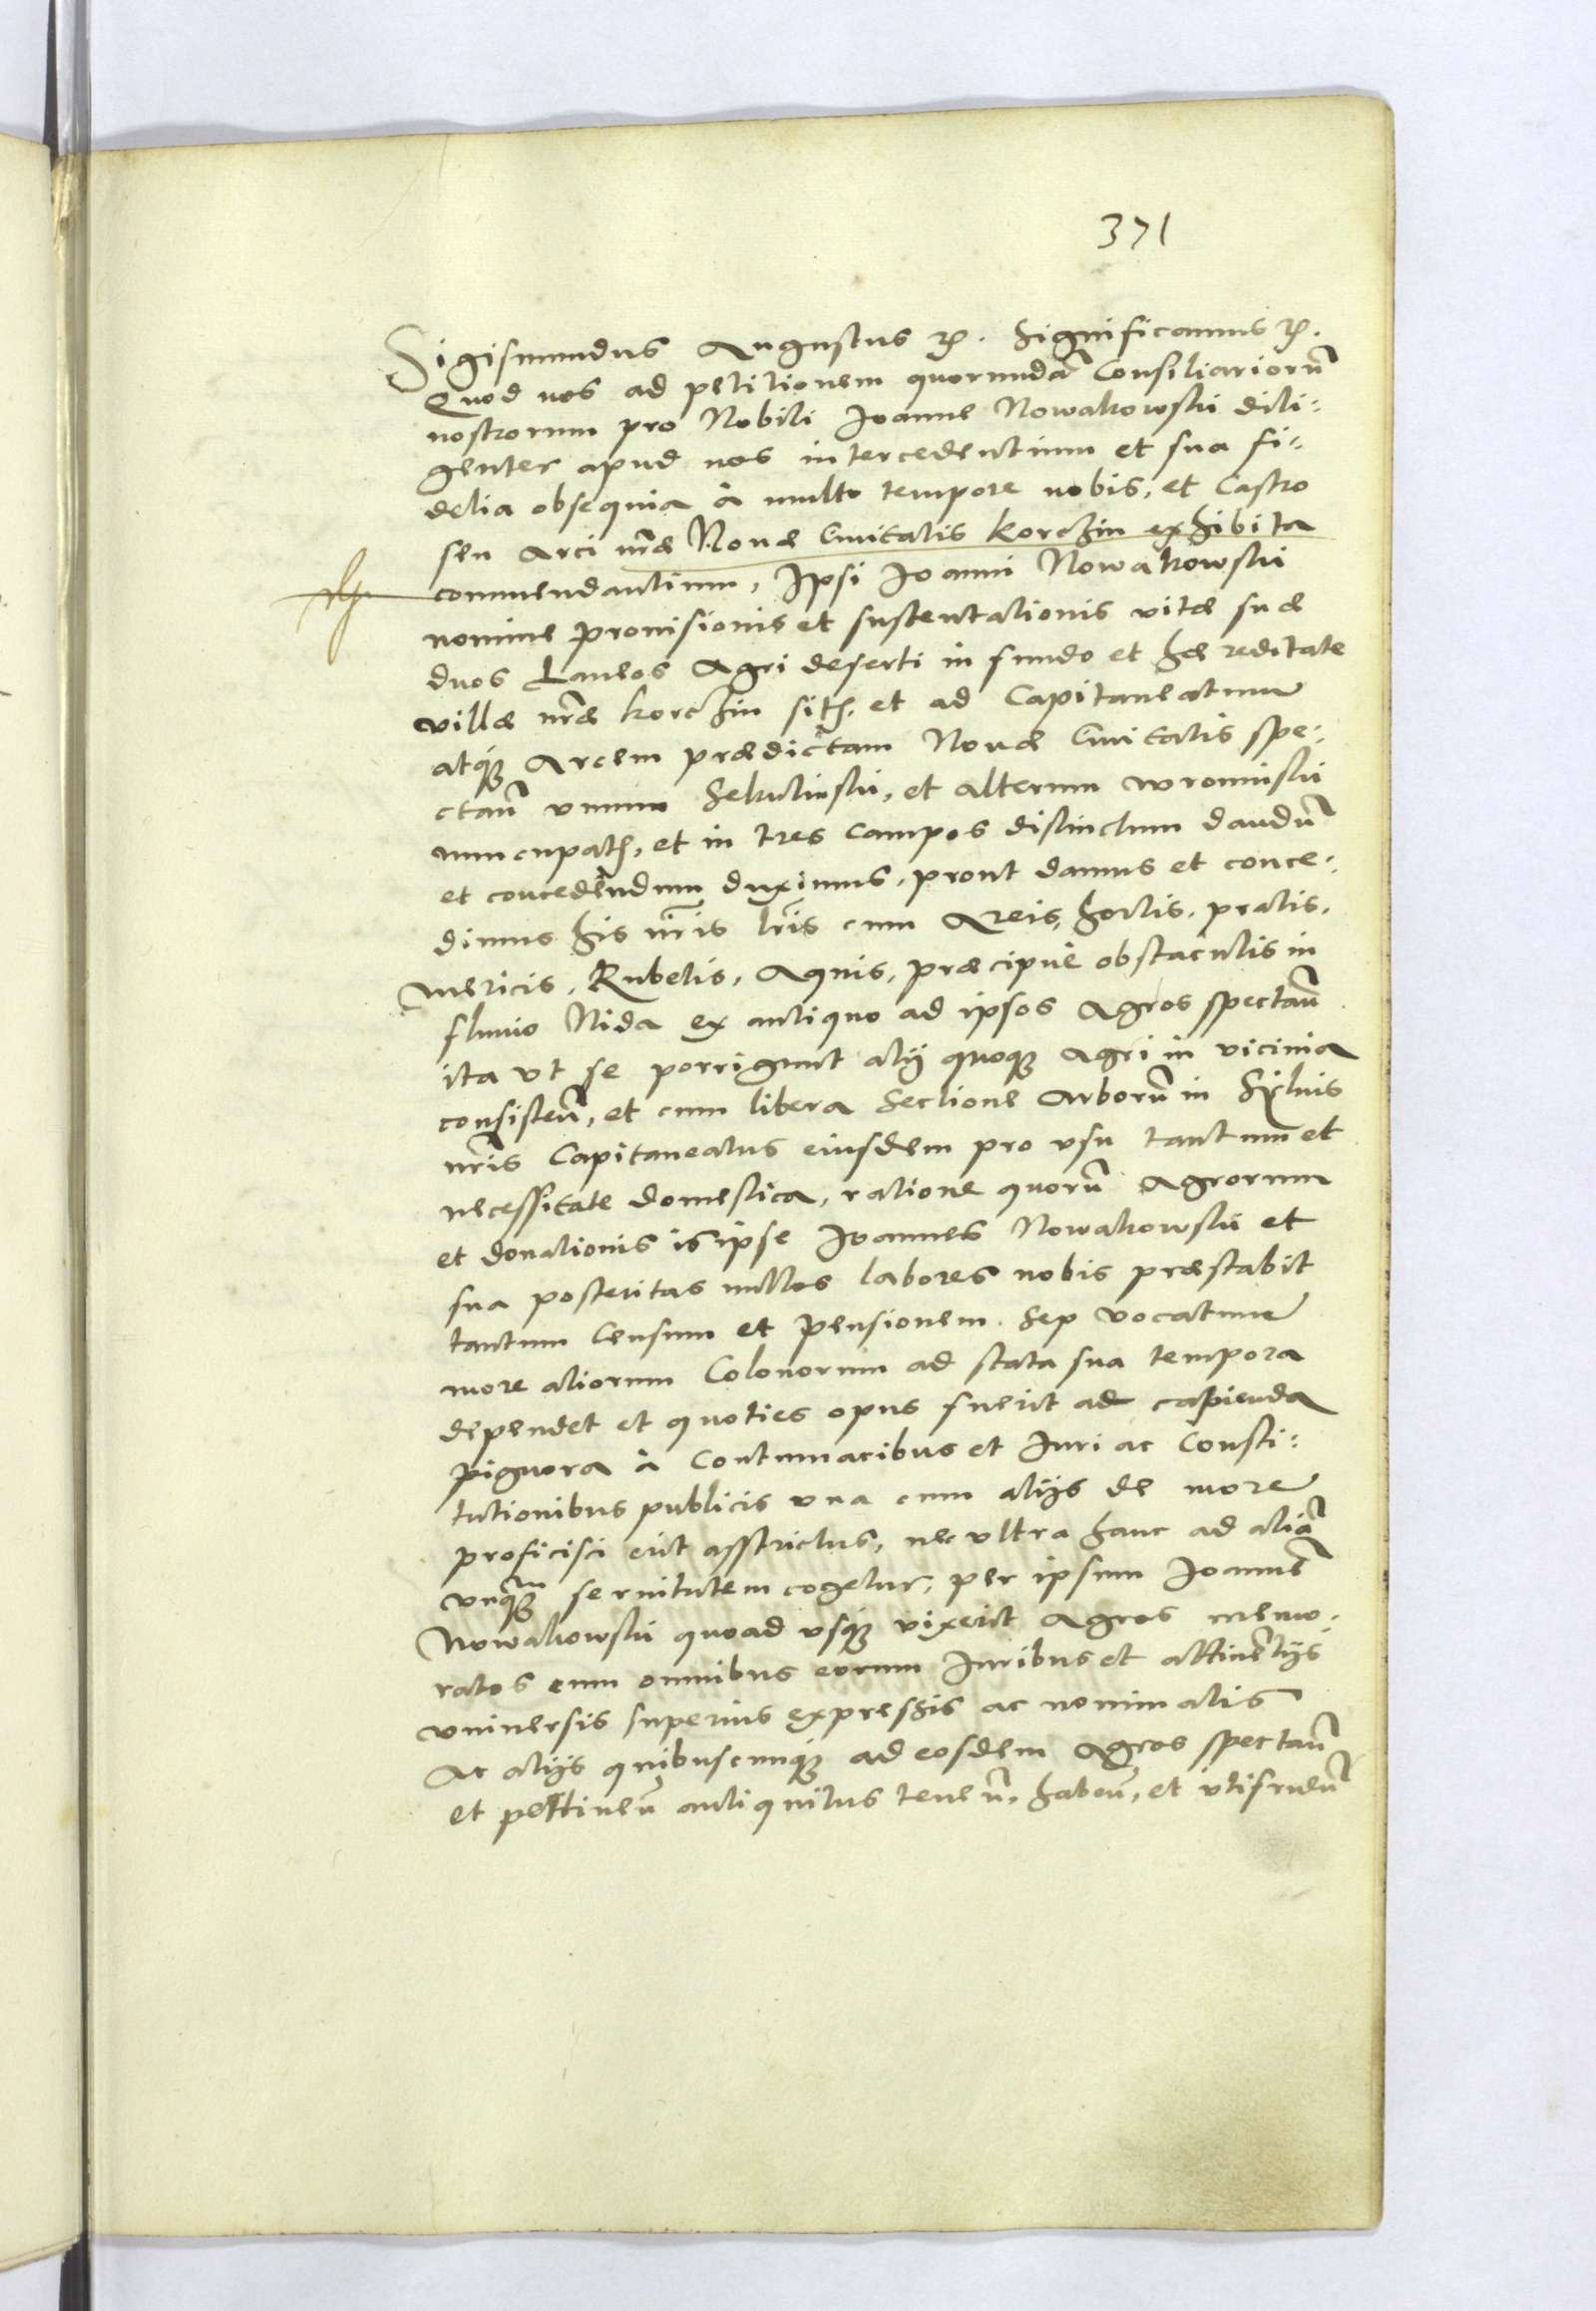 371
Sigismundus Augustus etc. Significamus etc.
Quod nos ad petitionem quorundā Consiliariorū
nostrorum pro Nobili Joanne Nowakowski dili:
genter apud nos intercedentium et sua fi:
delia obsequia à multo tempore nobis, et Castro
seu Arci nrae Nouae Ciuitatis Korczin exhibita
commendantium, Ipsi Joanni Nowakowski
nomine prouisionis et sustentationis vitae suae
duos Laneos Agri deserti in fundo et haereditate
villae nrae Korczin sit. et ad Capitaneatum
atque Arcem praedictam Nouae Ciuitatis spe:
ctan̄ vnum Sekulinski, et alterum wroninski
nuncupat, et in tres campos distinctum dandū
et concedendum duximus, prout damus et conce:
dimus his nris lris cum Areis, hortis, pratis,
mericis, Rubetis, Aquis, praecipuè obstaculis in
fluuio Nida ex antiquo ad ipsos Agros spectan̄
ita vt se porrigunt alij quoque Agri in vicinia
consisten̄, et cum libera Sectione Arborū in Syluis
nris Capitaneatus eiusdem pro vsu tantum et
necessitate domestica, ratione quorū Agrorum
et donationis is ipse Joannes Nowakowski et
sua posteritas nullos labores nobis praestabit
tantum Censum et pensionem. Sep vocatum
more aliorum Colonorum ad stata sua tempora
dependet et quoties opus fuerit ad capienda
pignora à Contumacibus et Juri ac Consti:
tutionibus publicis vna cum alijs de more
proficisci erit asstrictus, nec vltra hanc ad aliā
vnquam seruitutem cogetur, per ipsum Joannē
Nowakowski quoad vsque vixerit Agros memo:
ratos cum omnibus eorum Juribus et attinētijs
vniuersis superius expressis ac nominatis
Ac alijs quibuscunque ad eosdem Agros spectan̄
et pertinen̄ antiquitus tenen̄, haben̄, et vtifruen̄